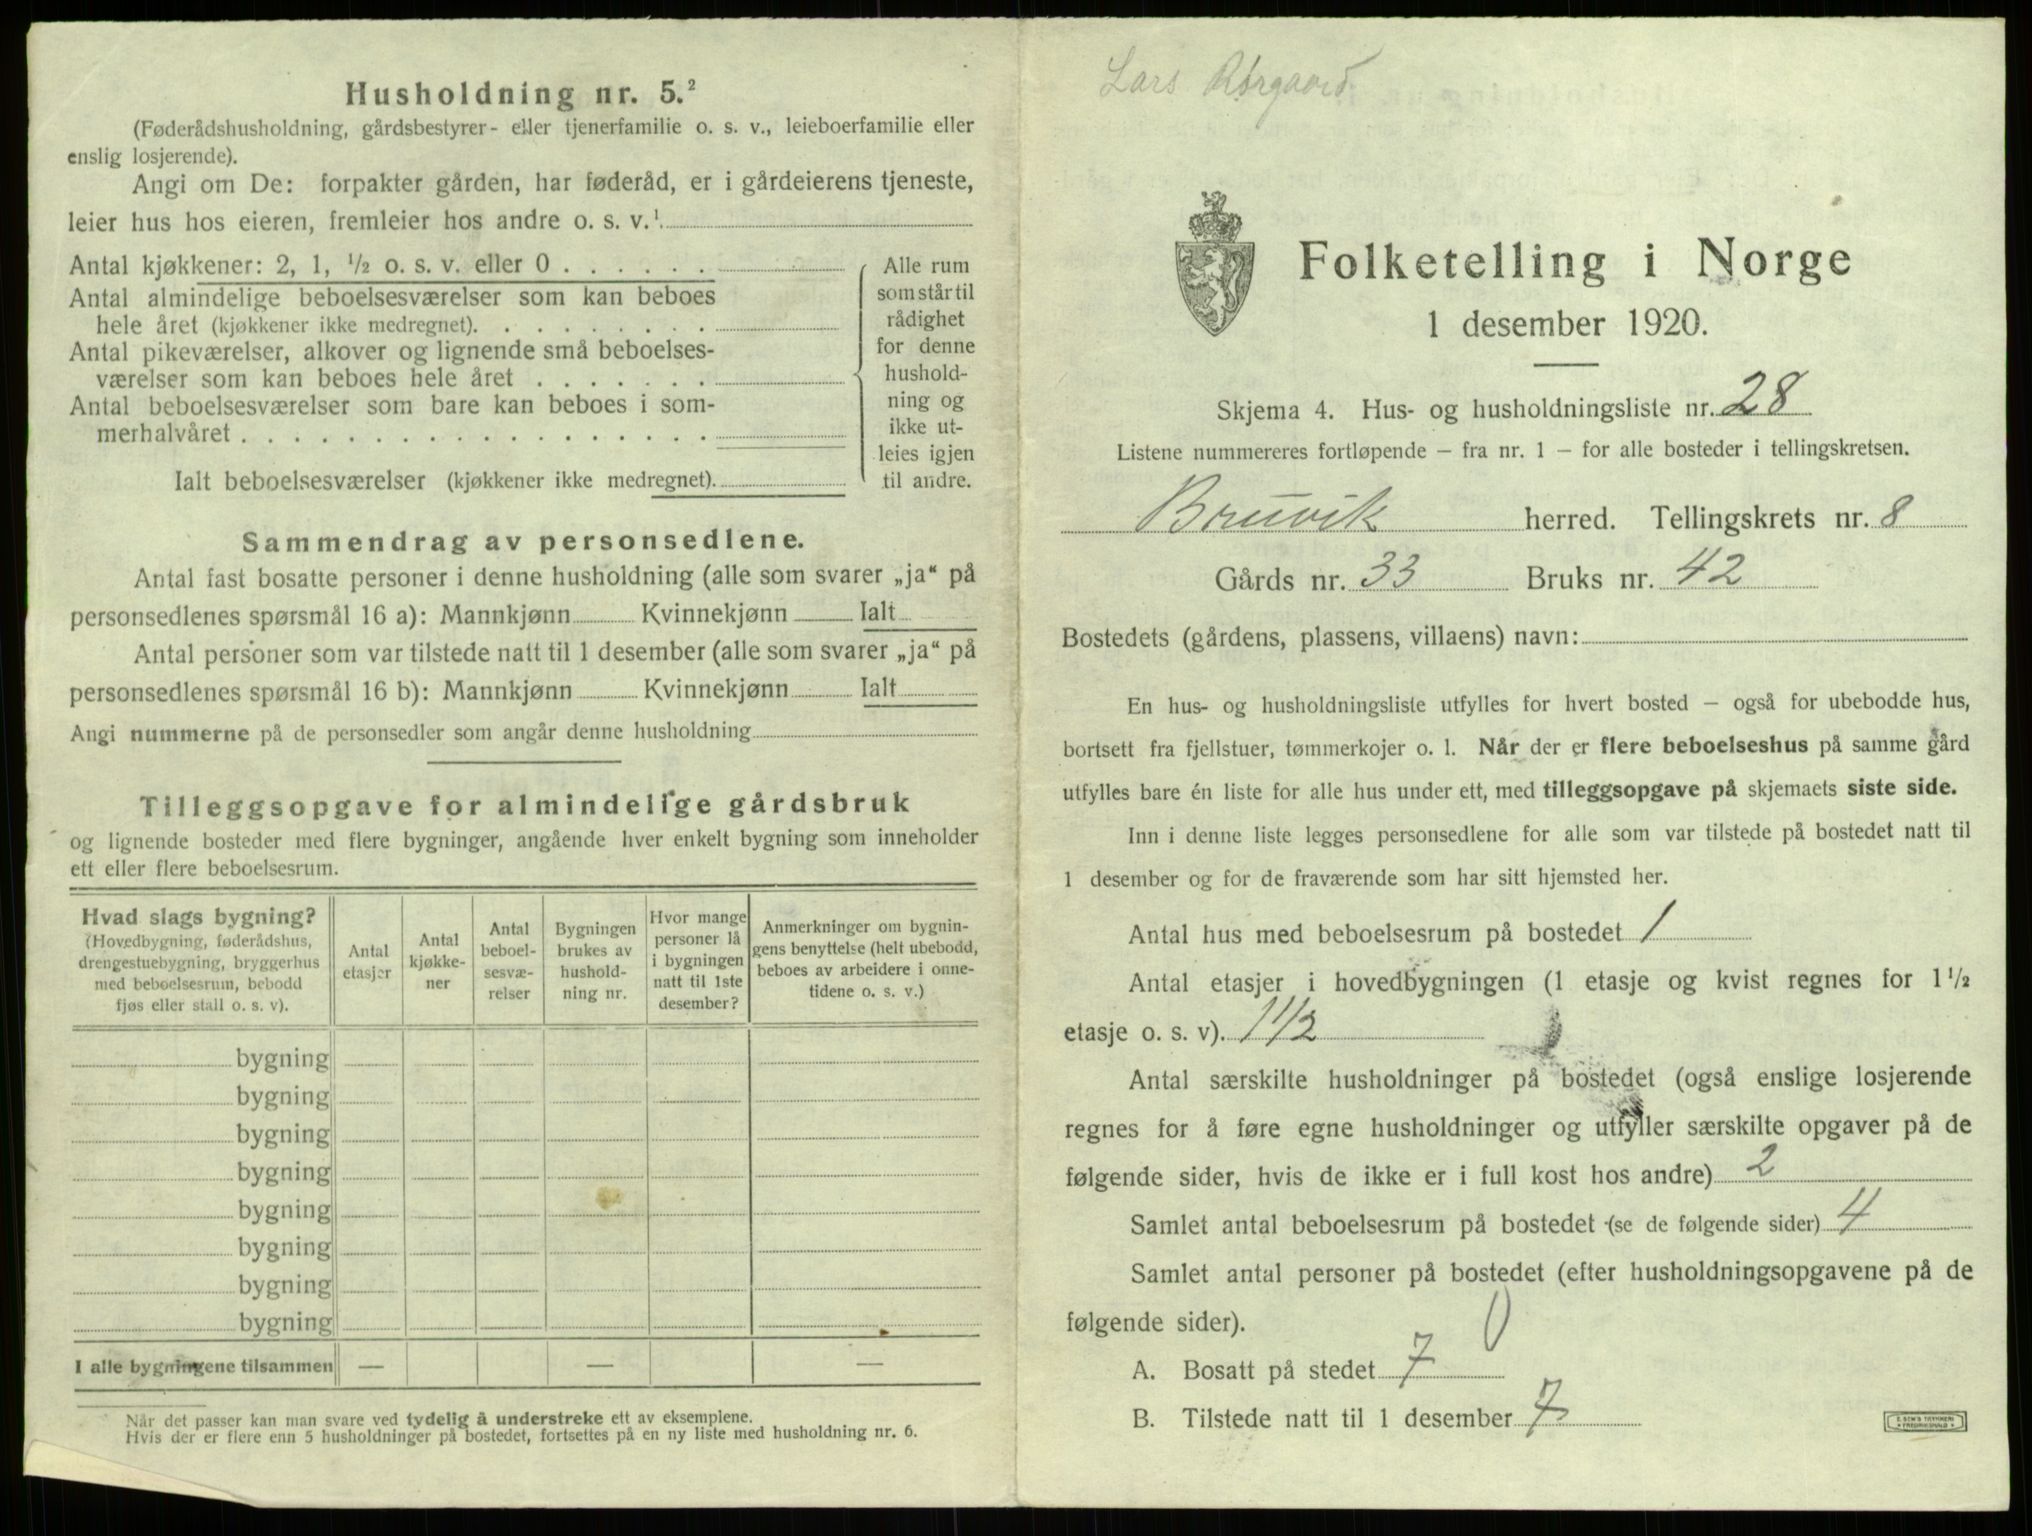 Husholdning nr. 5.²
(Føderådshusholdning, gårdsbestyrer- eller tjenerfamilie o. s. v., leieboerfamilie eller
enslig losjerende).
Angi om De: forpakter gården, har føderåd, er i gårdeierens tjeneste,
leier hus hos eieren, fremleier hos andre o. s. v.¹
Antal kjøkkener: 2, 1, ½ o. s. v. eller 0 . . . . . .
Antal almindelige beboelsesværelser som kan beboes
hele året (kjøkkener ikke medregnet). . . . . . . . .
Antal pikeværelser, alkover og lignende små beboelses-
værelser som kan beboes hele året . . . . . . .
Antal beboelsesværelser som bare kan beboes i som-
merhalvåret . . . . . . . . . . . . . . . . . .
Ialt beboelsesværelser (kjøkkener ikke medregnet).
Alle rum
som står til
rådighet
for denne
hushold-
ning og
ikke ut-
leies igjen
til andre.
Sammendrag av personsedlene.
Antal fast bosatte personer i denne husholdning (alle som svarer „ja“ på
personsedlenes spørsmål 16 a): Mannkjønn Kvinnekjønn Ialt
Antal personer som var tilstede natt til 1 desember (alle som svarer „ja“ på
personsedlenes spørsmål 16 b): Mannkjønn Kvinnekjønn Ialt
Angi nummerne på de personsedler som angår denne husholdning
Tilleggsopgave for almindelige gårdsbruk
og lignende bosteder med flere bygninger, angående hver enkelt bygning som inneholder
ett eller flere beboelsesrum.
Hvad slags bygning?
(Hovedbygning, føderådshus,
drengestuebygning, bryggerhus
med beboelsesrum, bebodd
fjøs eller stall o. s. v).
Antal
etasjer
Antal
kjøkke-
ner
Antal
beboel-
sesvæ-
relser
Bygningen
brukes av
hushold-
ning nr.
Hvor mange
personer lå
i bygningen
natt til 1ste
desember?
Anmerkninger om bygnin-
gens benyttelse (helt ubebodd,
beboes av arbeidere i onne-
tidene o. s. v.)
bygning
bygning
bygning
bygning
bygning
bygning
bygning
bygning
I alle bygningene tilsammen — — —
Når det passer kan man svare ved tydelig å understreke ett av eksemplene.
Hvis der er flere enn 5 husholdninger på bostedet, fortsettes på en ny liste med husholdning nr. 6.
Lars Rørgaard
Folketelling i Norge
1 desember 1920.
Skjema 4. Hus- og husholdningsliste nr. 28
Listene nummereres fortløpende – fra nr. 1 – for alle bosteder i tellingskretsen.
Bruvik herred. Tellingskrets nr. 8
Gårds nr. 33 Bruks nr. 42
Bostedets (gårdens, plassens, villaens) navn:
En hus- og husholdningsliste utfylles for hvert bosted – også for ubebodde hus,
bortsett fra fjellstuer, tømmerkojer o. l. Når der er flere beboelseshus på samme gård
utfylles bare én liste for alle hus under ett, med tilleggsopgave på skjemaets siste side.
Inn i denne liste legges personsedlene for alle som var tilstede på bostedet natt til
1 desember og for de fraværende som har sitt hjemsted her.
Antal hus med beboelsesrum på bostedet 1
Antal etasjer i hovedbygningen (1 etasje og kvist regnes for 1½
etasje o. s. v). 1½
Antal særskilte husholdninger på bostedet (også enslige losjerende
regnes for å føre egne husholdninger og utfyller særskilte opgaver på de
følgende sider, hvis de ikke er i full kost hos andre) 2
Samlet antal beboelsesrum på bostedet (se de følgende sider) 4
Samlet antal personer på bostedet (efter husholdningsopgavene på de
følgende sider). 0
A. Bosatt på stedet 7
B. Tilstede natt til 1 desember 7